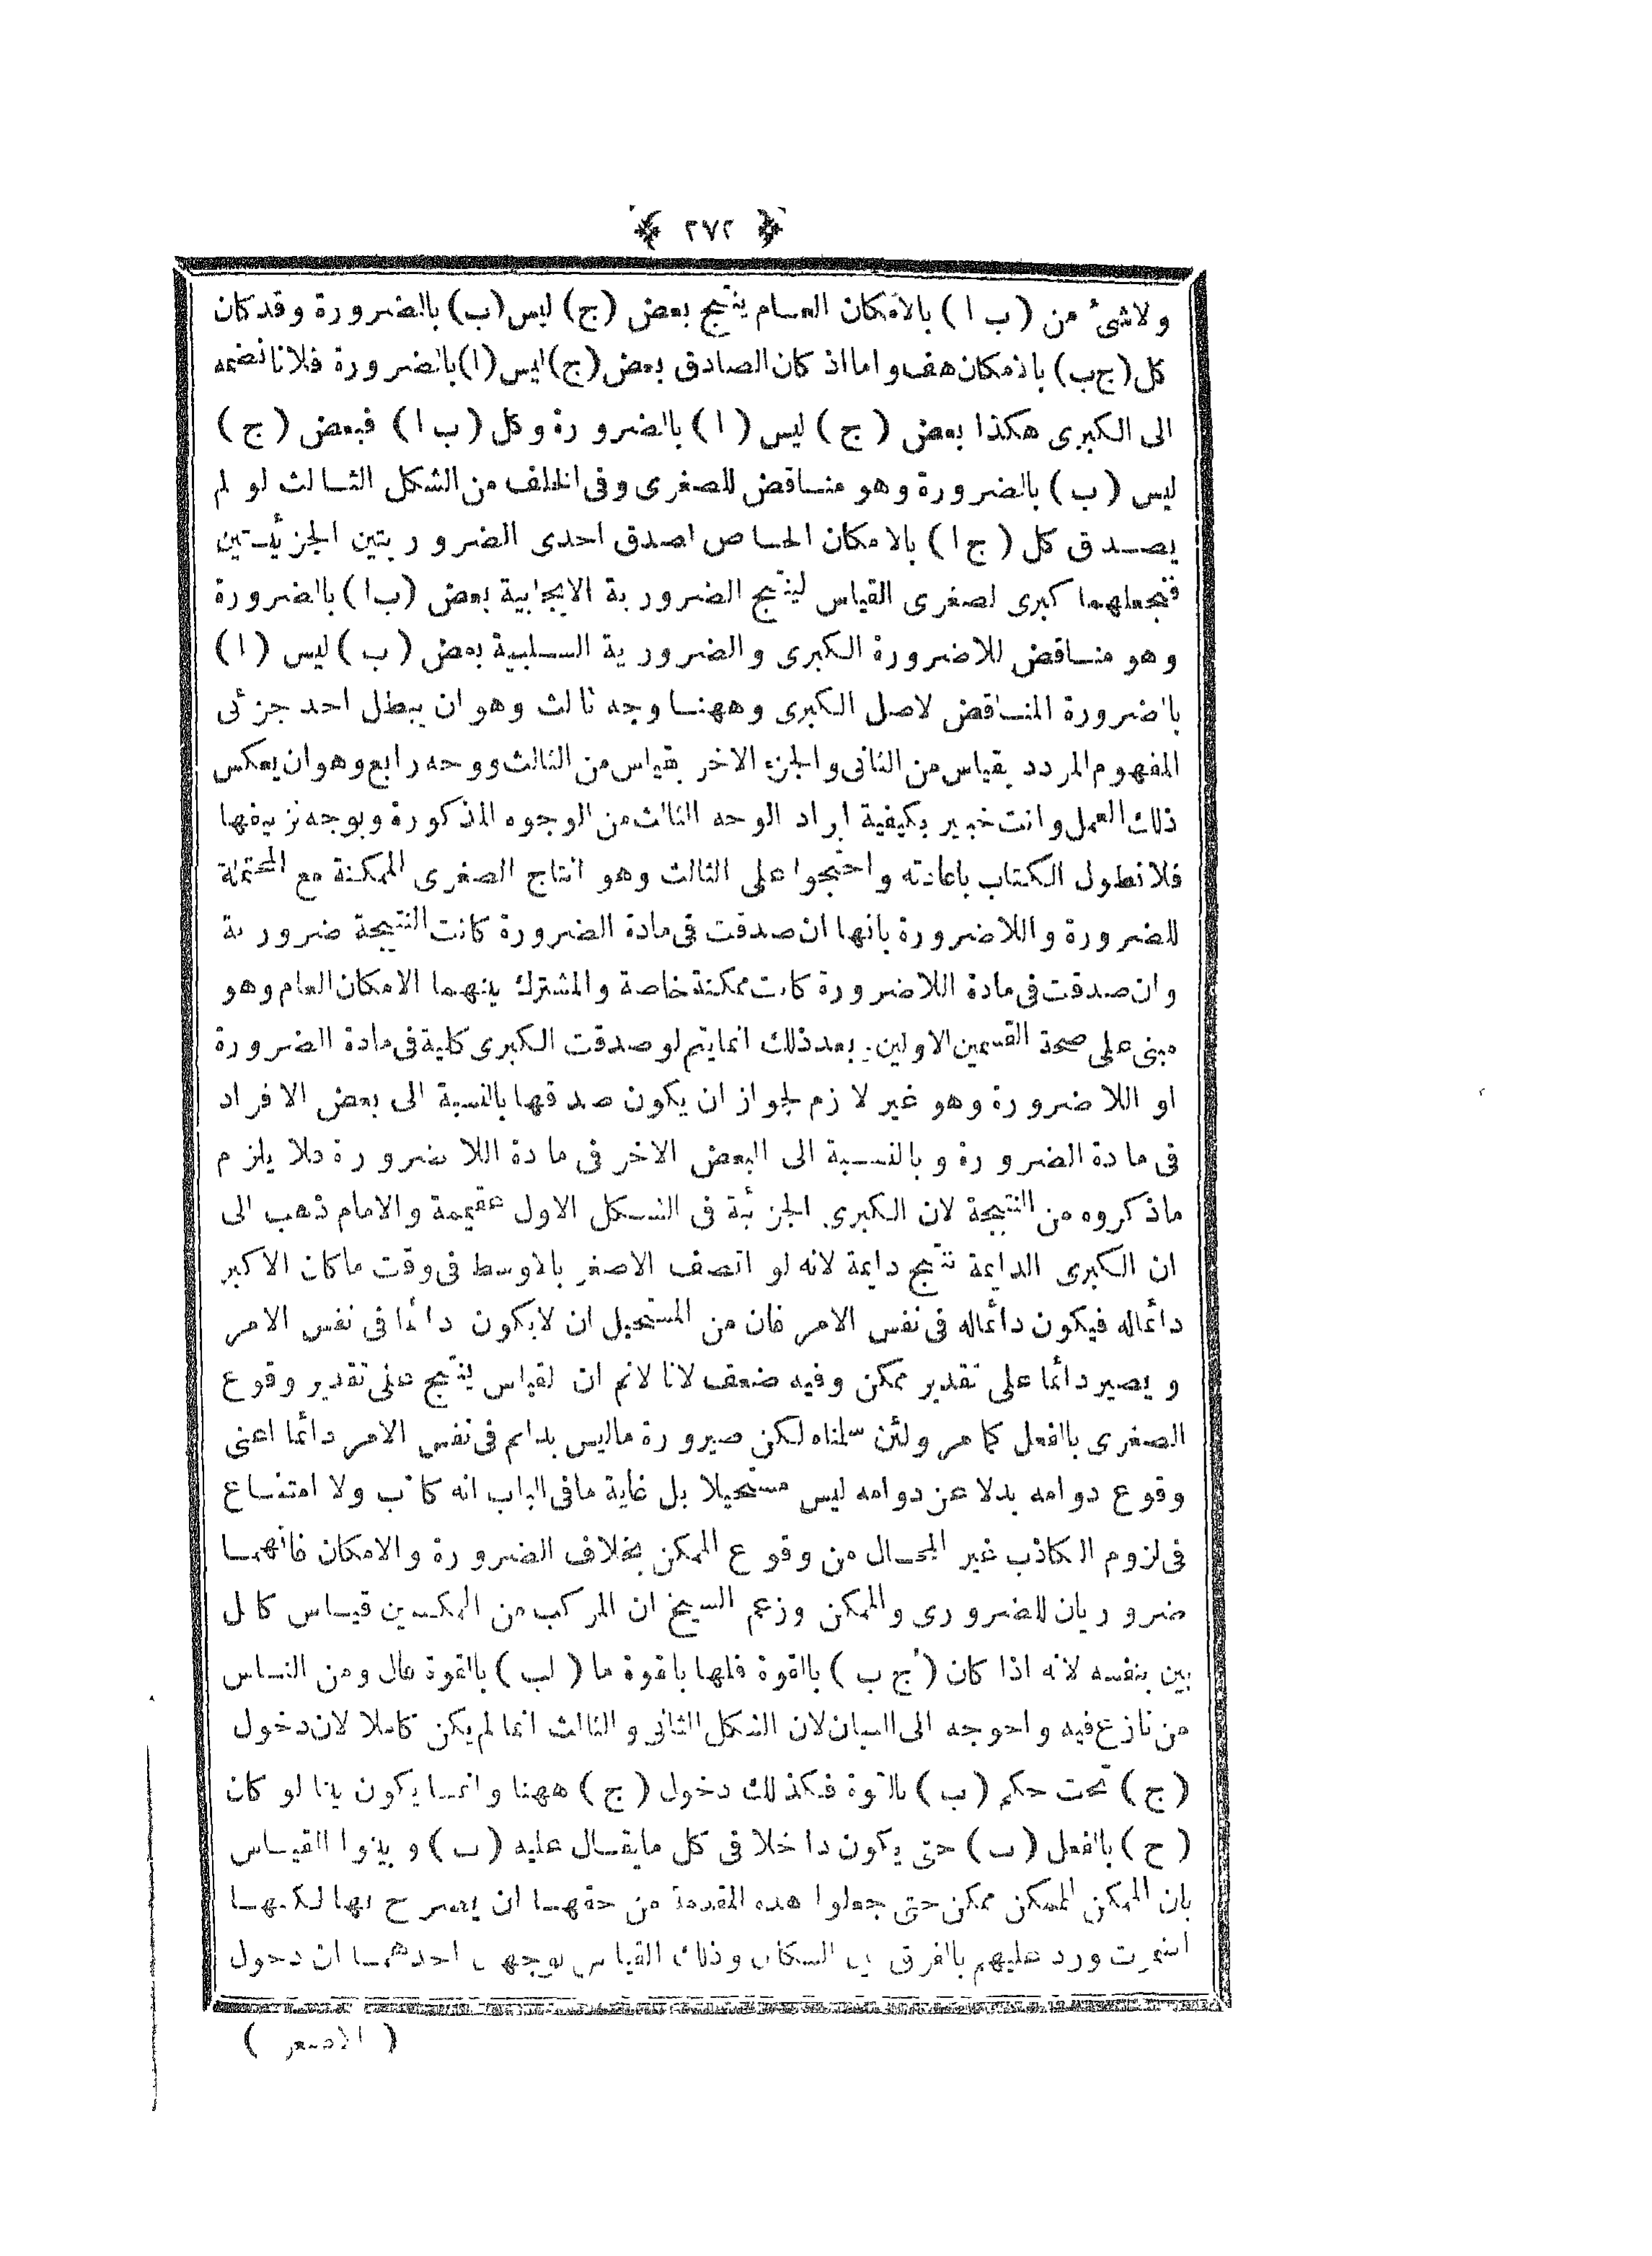 ﴿ ٢٧٢ ﴾
ولاشئ من (ب ا) بالامكان العـام ينتج بعض (ج) ليس (ب) بالضرورة وقدكان
كل (ج ب) بالامكان هف واما اذ كان الصادق بعض (ج) ليس (ا) بالضرورة فلانا نضمه
الى الكبرى هكذا بعض (ج) ليس (ا) بالضرورة وكل (ب ا) فبعض (ج)
ليس (ب) بالضرورة وهو منـاقض للصغرى وفى الخلف من الشكل الثـالث لو لم
يصـدق كل (ج ا) بالامكان الخـاص لصدق احدى الضروريتين الجزئيـتين
فنجعلهما كبرى لصغرى القياس لينتج الضرورية الايجابية بعض (ب ا) بالضرورة
وهو منـاقض للاضرورة الكبرى والضرورية السـلبية بعض (ب) ليس (ا)
بالضرورة المنـاقض لاصل الكبرى وههنـا وجه ثالث وهو ان يبطل احد جزئى
المفهوم المردد بقياس من الثانى والجزء الاخر بقياس من الثالث ووجه رابع وهو ان يعكس
ذلك العمل وانت خبير بكيفية ايراد الوجه الثالث من الوجوه المذكورة وبوجه تزييفها
فلا نطول الكتاب باعادته واحتجوا على الثالث وهو انتاج الصغرى الممكنة مع المحتملة
للضرورة واللاضرورة بانها ان صدقت فى مادة الضرورة كانت النتيجة ضرورية
وان صدقت فى مادة اللاضرورة كانت ممكنة خاصة والمشترك بينهما الامكان العام وهو
مبنى على صحة القسمين الاولين. بعد ذلك انما يتم لو صدقت الكبرى كلية فى مادة الضرورة
او اللا ضرورة وهو غير لازم لجواز ان يكون صدقها بالنسبة الى بعض الافراد
فى مادة الضرورة وبالنسـبة الى البعض الاخر فى مادة اللا ضرورة فلا يلزم
ماذكروه من النتيجة لان الكبرى الجزئية فى الشـكل الاول عقيمة والامام ذهب الى
ان الكبرى الدايمة تنتج دايمة لانه لو اتصف الاصغر بالاوسط فى وقت ماكان الاكبر
دائماله فيكون دائماله فى نفس الامر فان من المستحيل ان لايكون دائما فى نفس الامر
ويصير دائما على تقدير ممكن وفيه ضعف لانا لانم ان القياس ينتج على تقدير وقوع
الصغرى بالفعل كما مر ولئن سلمناه لكن صيرورة ماليس بدايم فى نفس الامر دائما اعنى
وقوع دوامه بدلا عن دوامه ليس مستحيلا بل غاية مافى الباب انه كاذب ولا امتنـاع
فى لزوم الكاذب غير المحـال من وقوع الممكن بخلاف الضرورة والامكان فانهمـا
ضروريان للضرورى والممكن وزعم الشيخ ان المركب من الممكنـتين قيـاس كامل
بين بنفسه لانه اذا كان (ج ب) بالقوة فلها بالقوة ما (لب) بالقوة قال ومن النـاس
من نازع فيه واحوجه الى البيان لان الشكل الثانى والثالث انما لم يكن كاملا لان دخول
(ج) تحت حكم (ب) بالقوة فكذلك دخول (ج) ههنا وانمـا يكون بينا لو كان
(ج) بالفعل (ب) حتى يكون داخلا فى كل مايقـال عليه (ب) وبينوا القيـاس
بان الممكن الممكن ممكن حتى جعلوا هذه المقدمة من حقهـا ان يصرح بها لكنهـا
اضمرت ورد عليهم بالفرق بين البيان وذلك القياس بوجهين احدهمـا ان دخول
( الاصغر )